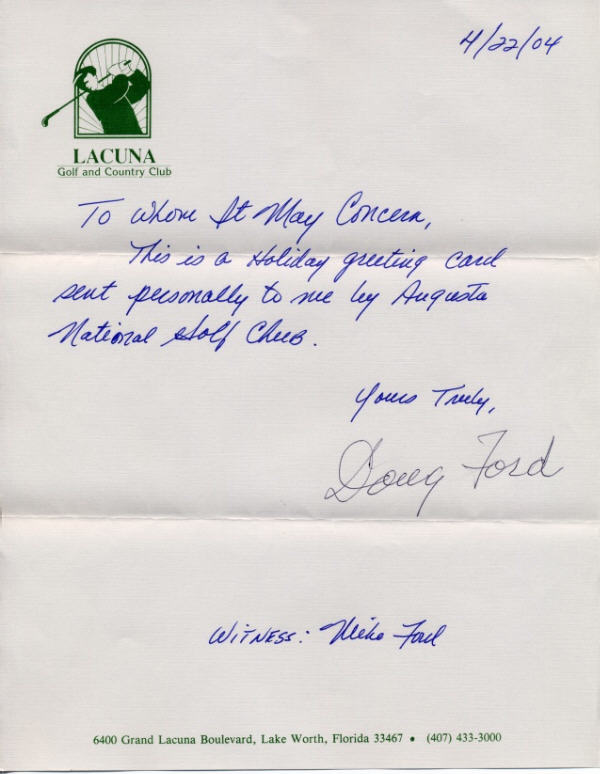 4/22/04
LACUNA
Golf and Country Club
To Whom It May Concern,
This is a Holiday greeting card
sent personally to me by Augusta
National Golf Club.
Yours Truly,
Doug Ford
WITNESS: Mike Ford
6400 Grand Lacuna Boulevard, Lake Worth, Florida 33467 • (407) 433-3000